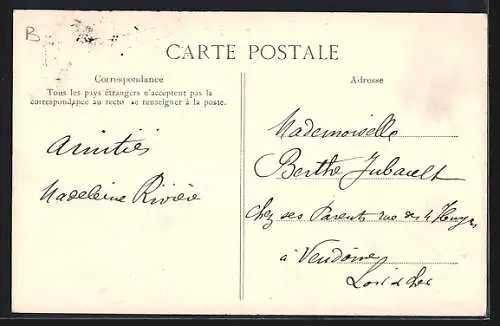 B
CARTE POSTALE
Correspondance
Tous les pays étrangers n'acceptent pas la
correspondance au recto se renseigner à la poste.
Adresse
Amitiés
Madeleine Rivière
Mademoiselle
Berthe Jubault
chez ses Parents rue des 4 Huyes
à Vendôme
Loir & Cher